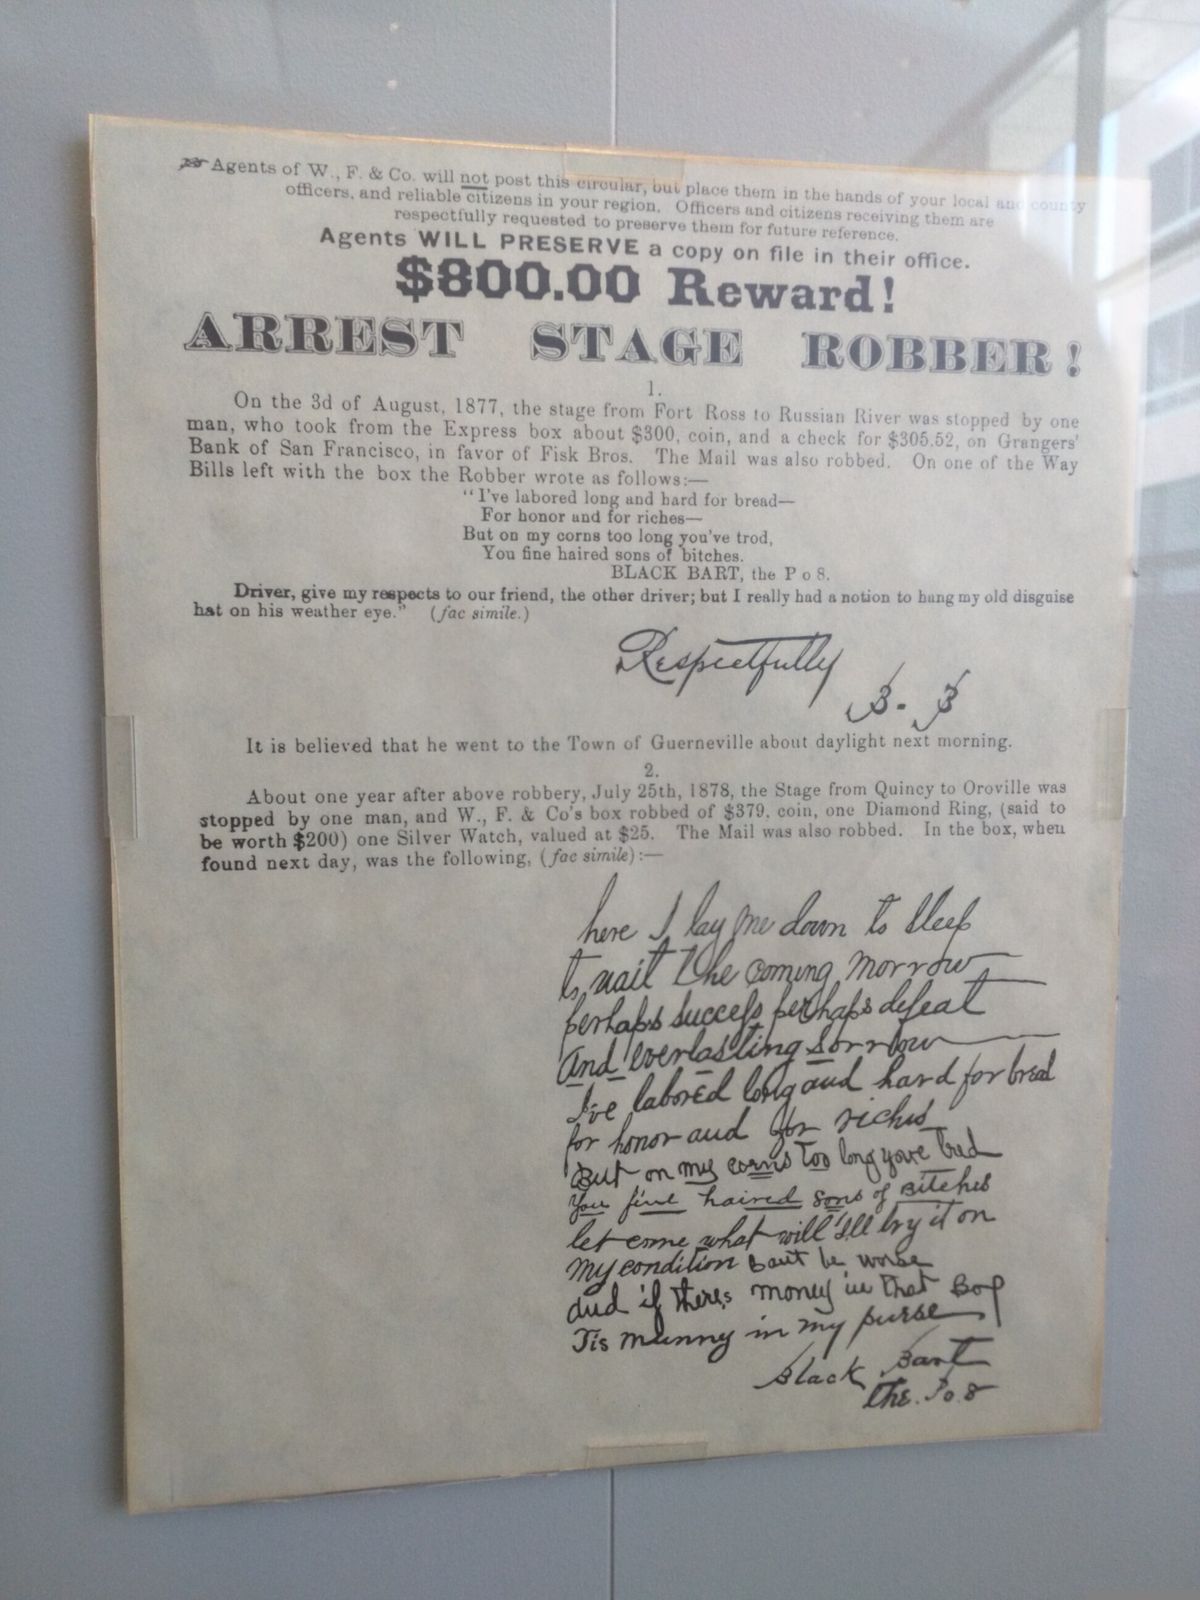 Agents of W., F. & Co. will not post this circular, but place them in the hands of your local and county
officers, and reliable citizens in your region. Officers and citizens receiving them are
respectfully requested to preserve them for future reference.
Agents WILL PRESERVE a copy on file in their office.
$800.00 Reward!
ARREST STAGE ROBBER!
1.
On the 3d of August, 1877, the stage from Fort Ross to Russian River was stopped by one
man, who took from the Express box about $300, coin, and a check for $305.52, on Grangers'
Bank of San Francisco, in favor of Fisk Bros. The Mail was also robbed. On one of the Way
Bills left with the box the Robber wrote as follows:—
"I've labored long and hard for bread—
For honor and for riches—
But on my corns too long you've trod,
You fine haired sons of bitches.
BLACK BART, the P o 8.
Driver, give my respects to our friend, the other driver; but I really had a notion to hang my old disguise
hat on his weather eye." (fac simile.)
Respectfully
B. B
It is believed that he went to the Town of Guerneville about daylight next morning.
2.
About one year after above robbery, July 25th, 1878, the Stage from Quincy to Oroville was
stopped by one man, and W., F. & Co's box robbed of $379, coin, one Diamond Ring, (said to
be worth $200) one Silver Watch, valued at $25. The Mail was also robbed. In the box, when
found next day, was the following, (fac simile):—
here I lay me down to Sleep
to wait the coming morrow
perhaps success perhaps defeat
And everlasting Sorrow
I've labored long and hard for bread
for honor and for riches
But on my corns too long youve tred
You fine haired sons of Bitches
let come what will I'll try it on
My condition cant be worse
and if theres money in that Box
Tis munny in my purse
Black Bart
the Po 8